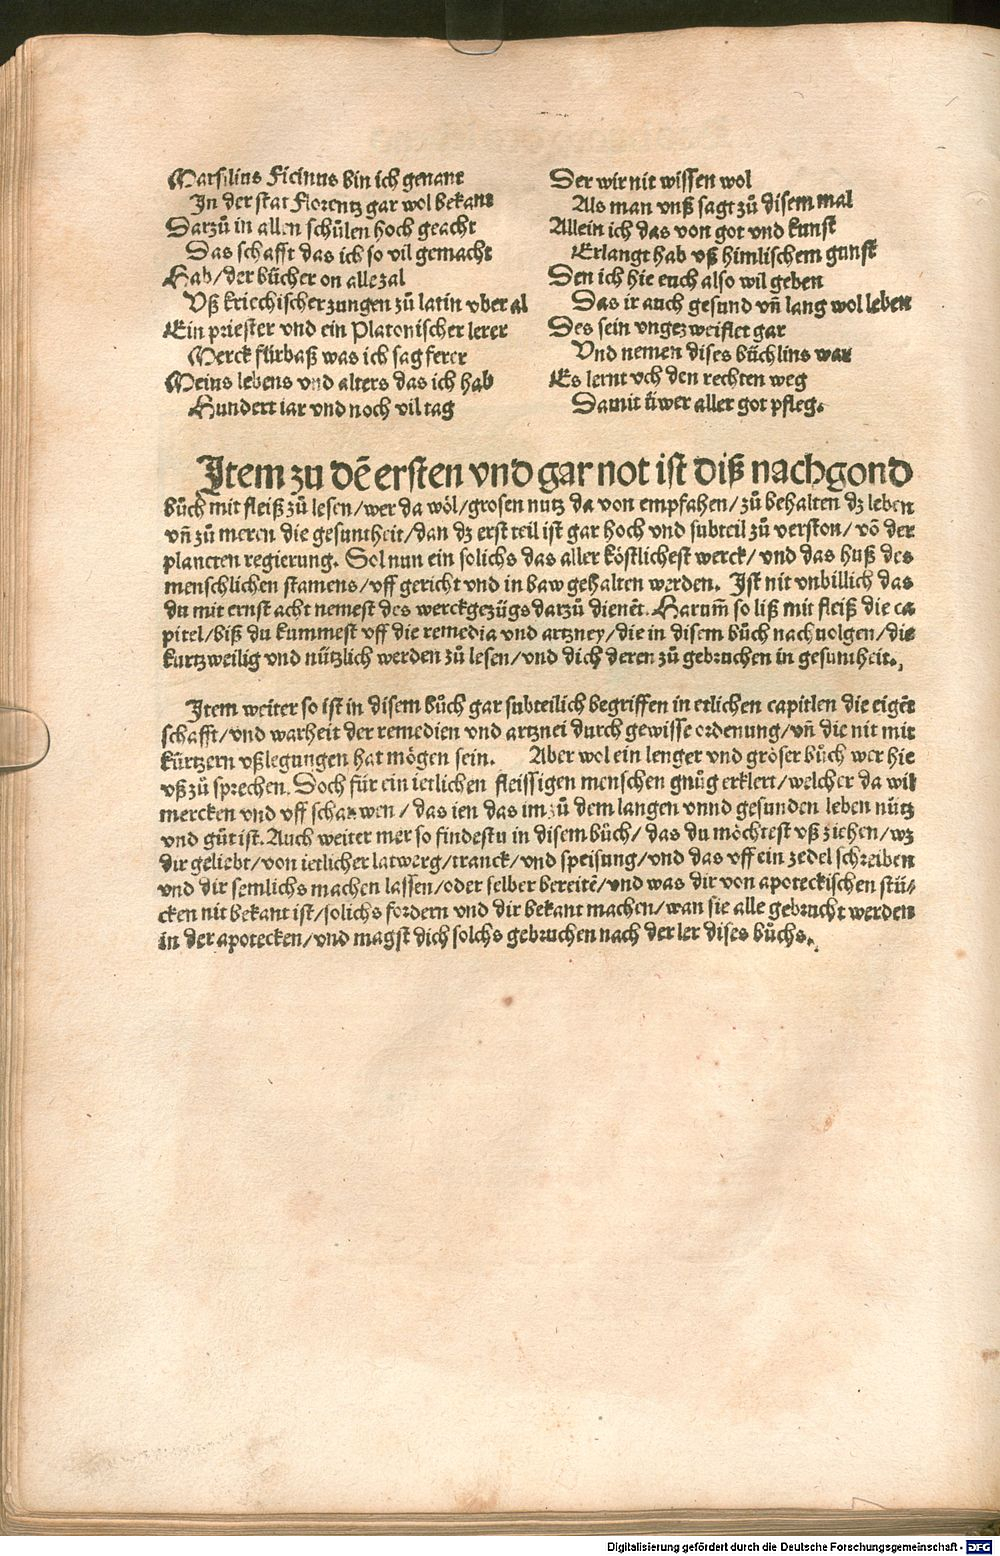 Marsilius Ficinus bin ich genant
In der stat Florentz gar wol bekant
Darzů in allen schůlen hoch geacht
Das schafft das ich so vil gemacht
Hab/der bücher on alle zal
Vß kriechischer zungen zů latin vber al
Ein priester vnd ein Platonischer lerer
Merck fürbaß was ich sag ferer
Meins lebens vnd alters das ich hab
Hundert iar vnd noch vil tag
Der wir nit wissen wol
Als man vnß sagt zů disem mal
Allein ich das von got vnd kunst
Erlangt hab vß himlischem gunst
Den ich hie euch also wil geben
Das ir auch gesund vñ lang wol leben
Des sein vngezweiflet gar
Vnd nemen dises büchlins war
Es lernt vch den rechten weg
Damit üwer aller got pfleg.
Item zu dē ersten vnd gar not ist diß nachgond
bůch mit fleiß zů lesen/wer da wöl/grosen nutz da von empfahen/zů behalten dz leben
vñ zů meren die gesuntheit/dan dz erst teil ist gar hoch vnd subteil zů verston/võ der
planeten regierung. Sol nun ein solichs das aller köstlichest werck/vnd das huß des
menschlichen stamens/vff gericht vnd in baw gehalten werden. Ist nit vnbillich das
du mit ernst acht nemest des werckgezügs darzů dienēt. Harum̃ so liß mit fleiß die ca
pitel/biß du kummest vff die remedia vnd artzney/die in disem bůch nach uolgen/die
kurtzweilig vnd nützlich werden zů lesen/vnd dich deren zů gebruchen in gesuntheit.
Item weiter so ist in disem bůch gar subteilich begriffen in etlichen capitlen die eigēt
schafft/vnd warheit der remedien vnd artznei durch gewisse ordenung/vñ die nit mit
kürtzern vßlegungen hat mögen sein. Aber wol ein lenger vnd gröser bůch wer hie
vß zů sprechen. Doch für ein ietlichen fleissigen menschen gnůg erklert/welcher da wil
mercken vnd vff schawen/das ien das im zů dem langen vnnd gesunden leben nütz
vnd gůt ist. Auch weiter mer so findestu in disem bůch/das du möchtest vß ziehen/wz
dir geliebt/von ietlicher latwerg/tranck/vnd speisung/vnd das vff ein zedel schreiben
vnd dir semlichs machen lassen/oder selber bereitē/vnd was dir von apoteckischen stü/
cken nit bekant ist/solichs fordern vnd dir bekant machen/wan sie alle gebrucht werden
in der apotecken/vnd magst dich solchs gebruchen nach der ler dises bůchs.
Digitalisierung gefördert durch die Deutsche Forschungsgemeinschaft - DFG